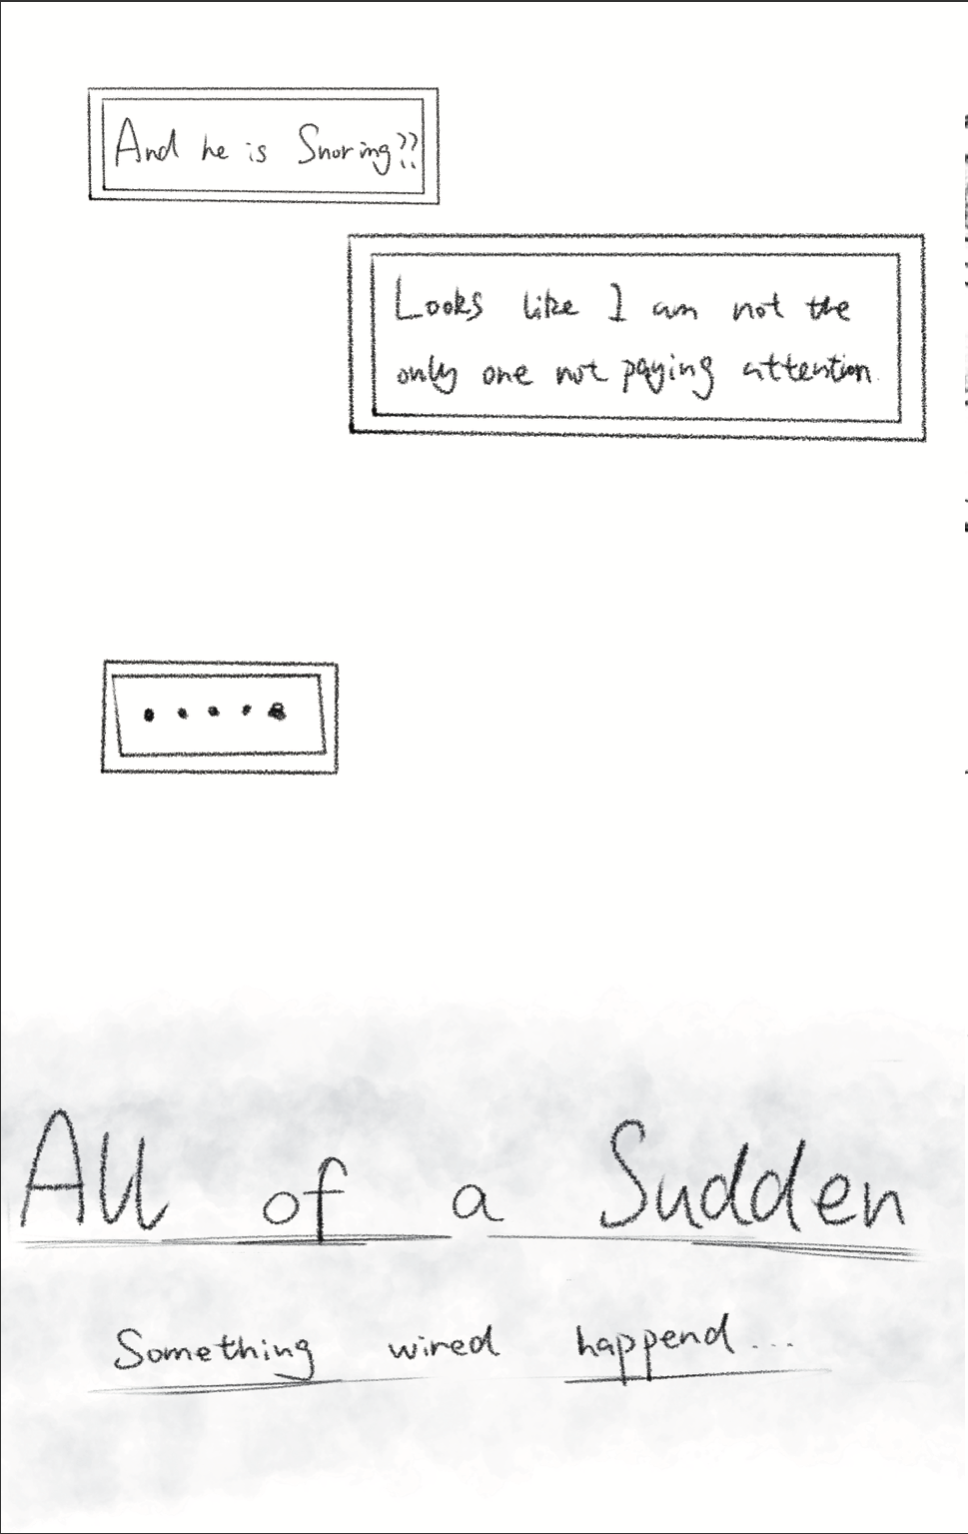 And he is Snoring??
Looks like I am not the
only one not paying attention.
.....
All of a Sudden
Something wired happend...